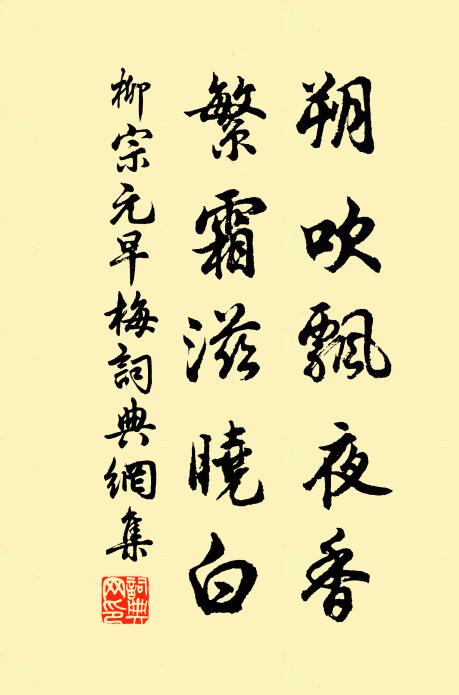 朔吹飄夜香
繁霜滋曉白
柳宗元早梅詞典網集
詞典网印